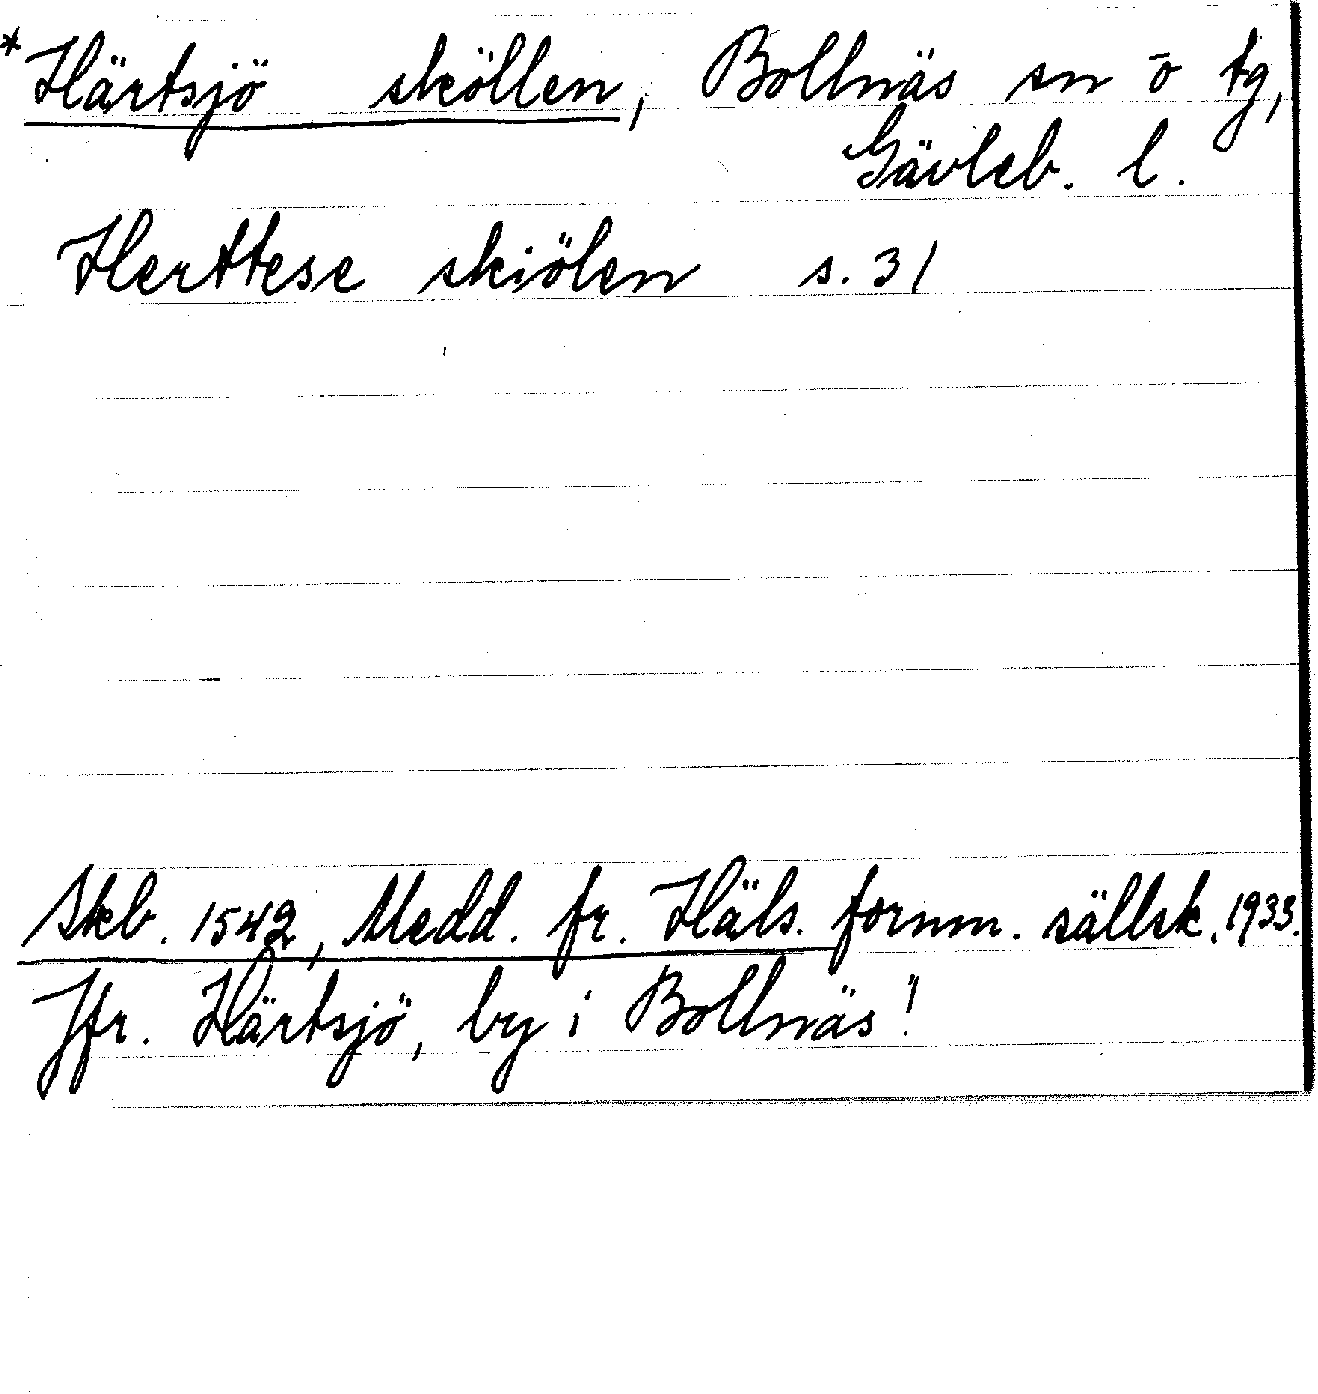 *Härtsjö sköllen, Bollnäs sn o tg,
Gävleb. l.
Herttese skiölen s. 31
Skb. 1542, Medd. fr. Häls. fornm. sällsk. 1933.
Jfr. Härtsjö, by i Bollnäs!